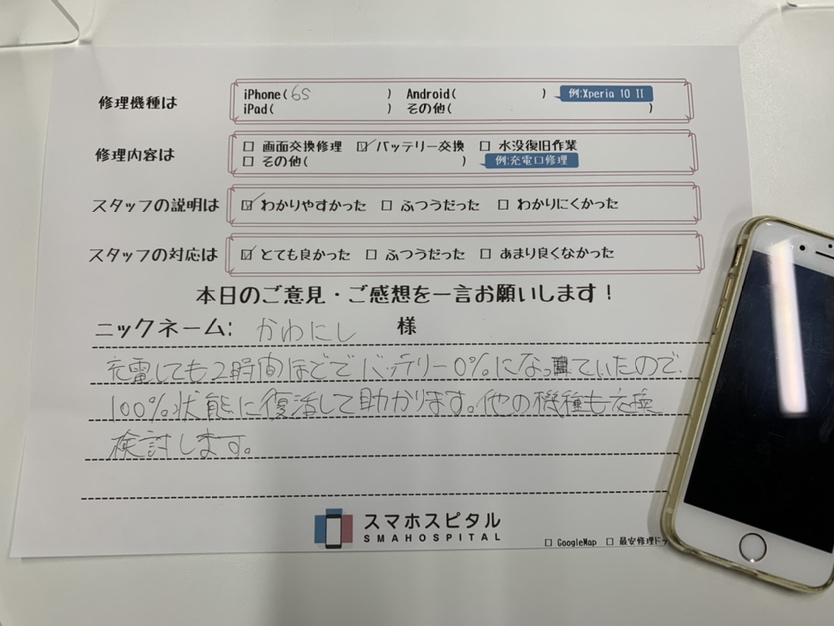 修理機種は
iPhone( 6S ) Android( ) 例:Xperia 10 II
iPad( ) その他( )
修理内容は
□ 画面交換修理 ☑ バッテリー交換 □ 水没復旧作業
□ その他( ) 例:充電口修理
スタッフの説明は ☑ わかりやすかった □ ふつうだった □ わかりにくかった
スタッフの対応は ☑ とても良かった □ ふつうだった □ あまり良くなかった
本日のご意見・ご感想を一言お願いします!
ニックネーム: かわにし 様
充電しても2時間ほどでバッテリー0%になっていたので、
100%状態に復活して助かります。他の機種も交換
検討します。
スマホスピタル
SMAHOSPITAL
□ GoogleMap □ 最安修理ドッ